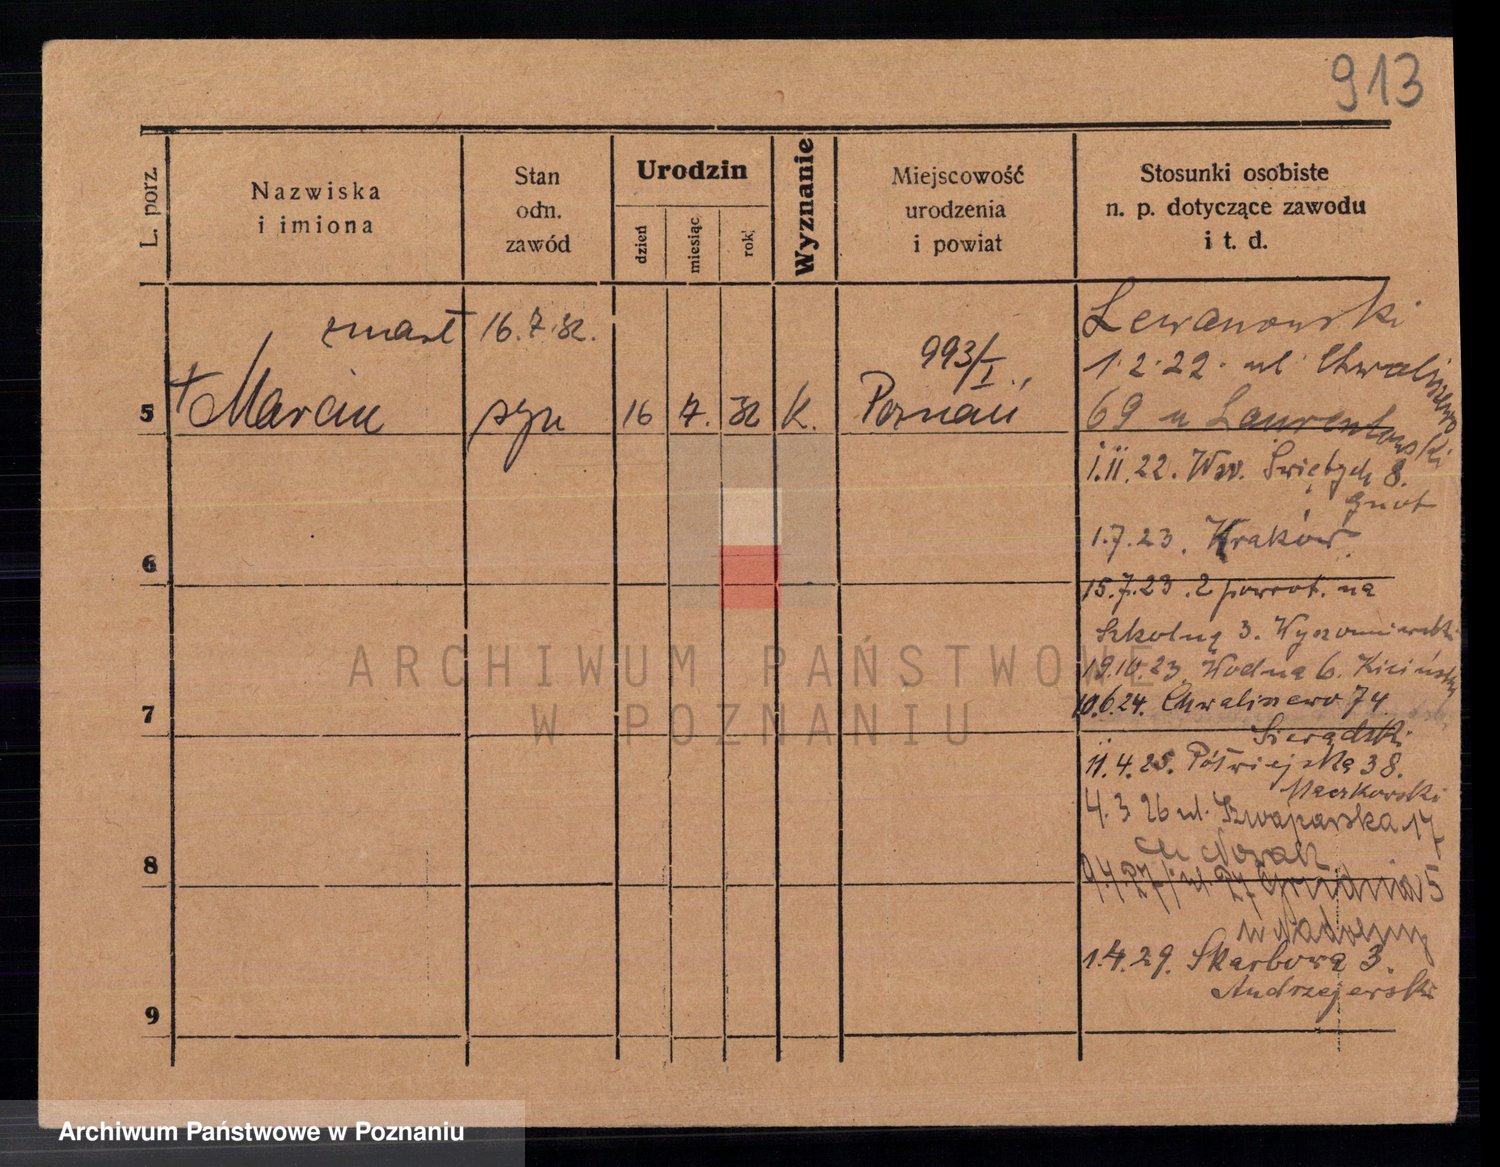 913
L. porz.
Nazwiska
i imiona
Stan
odn.
zawód
Urodzin
dzień
miesiąc
rok
Wyznanie
Miejscowość
urodzenia
i powiat
Stosunki osobiste
n. p. dotyczące zawodu
i t. d.
zmarł 16.7.32.
5
† Marcin
syn
16
7.
32
k.
993/I
Poznań
6
7
8
9
Lewanowski
1.2.22. ul Chwaliszewo
69 u Laurentowski
1.11.22. Wzg. Świętych 8.
1.7.23. Kraków.
15.7.23. z powrot. na
Szkolną 3.
19.10.23. Wodna 6. Kiciński
10.6.24. Chwaliszewo 74.
Sieradzki
11.4.25. Półwiejska 38.
Maczkowski
4.3 26 ul. Szwajcarska 17
Nowak
9.4.27 ul. 27 Grudnia 5
1.4.29. Skarbowa 3.
Andrzejewski
ARCHIWUM PAŃSTWOWE
W POZNANIU
Archiwum Państwowe w Poznaniu